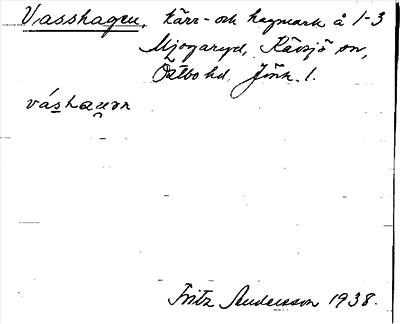 Vasshagen, kärr- och hagmark å 1-3
Mjogaryd, Kävsjö sn,
Östbo hd, Jönk. l.
vás̲hau̯ən
Fritz Andersson 1938.